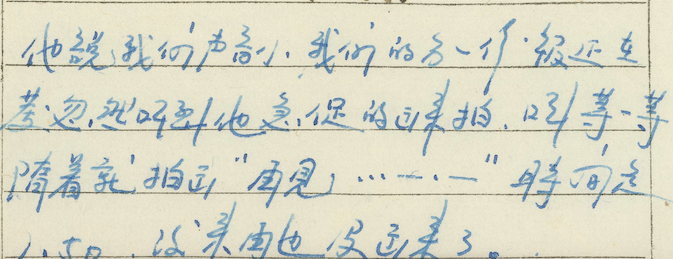 他說我们声音小.我们的另一个报还在
发.忽然听到他急促的过来拍.叫等一等
隨着就拍过"再見,……一"時间是
1.50.以来再也没过来了。